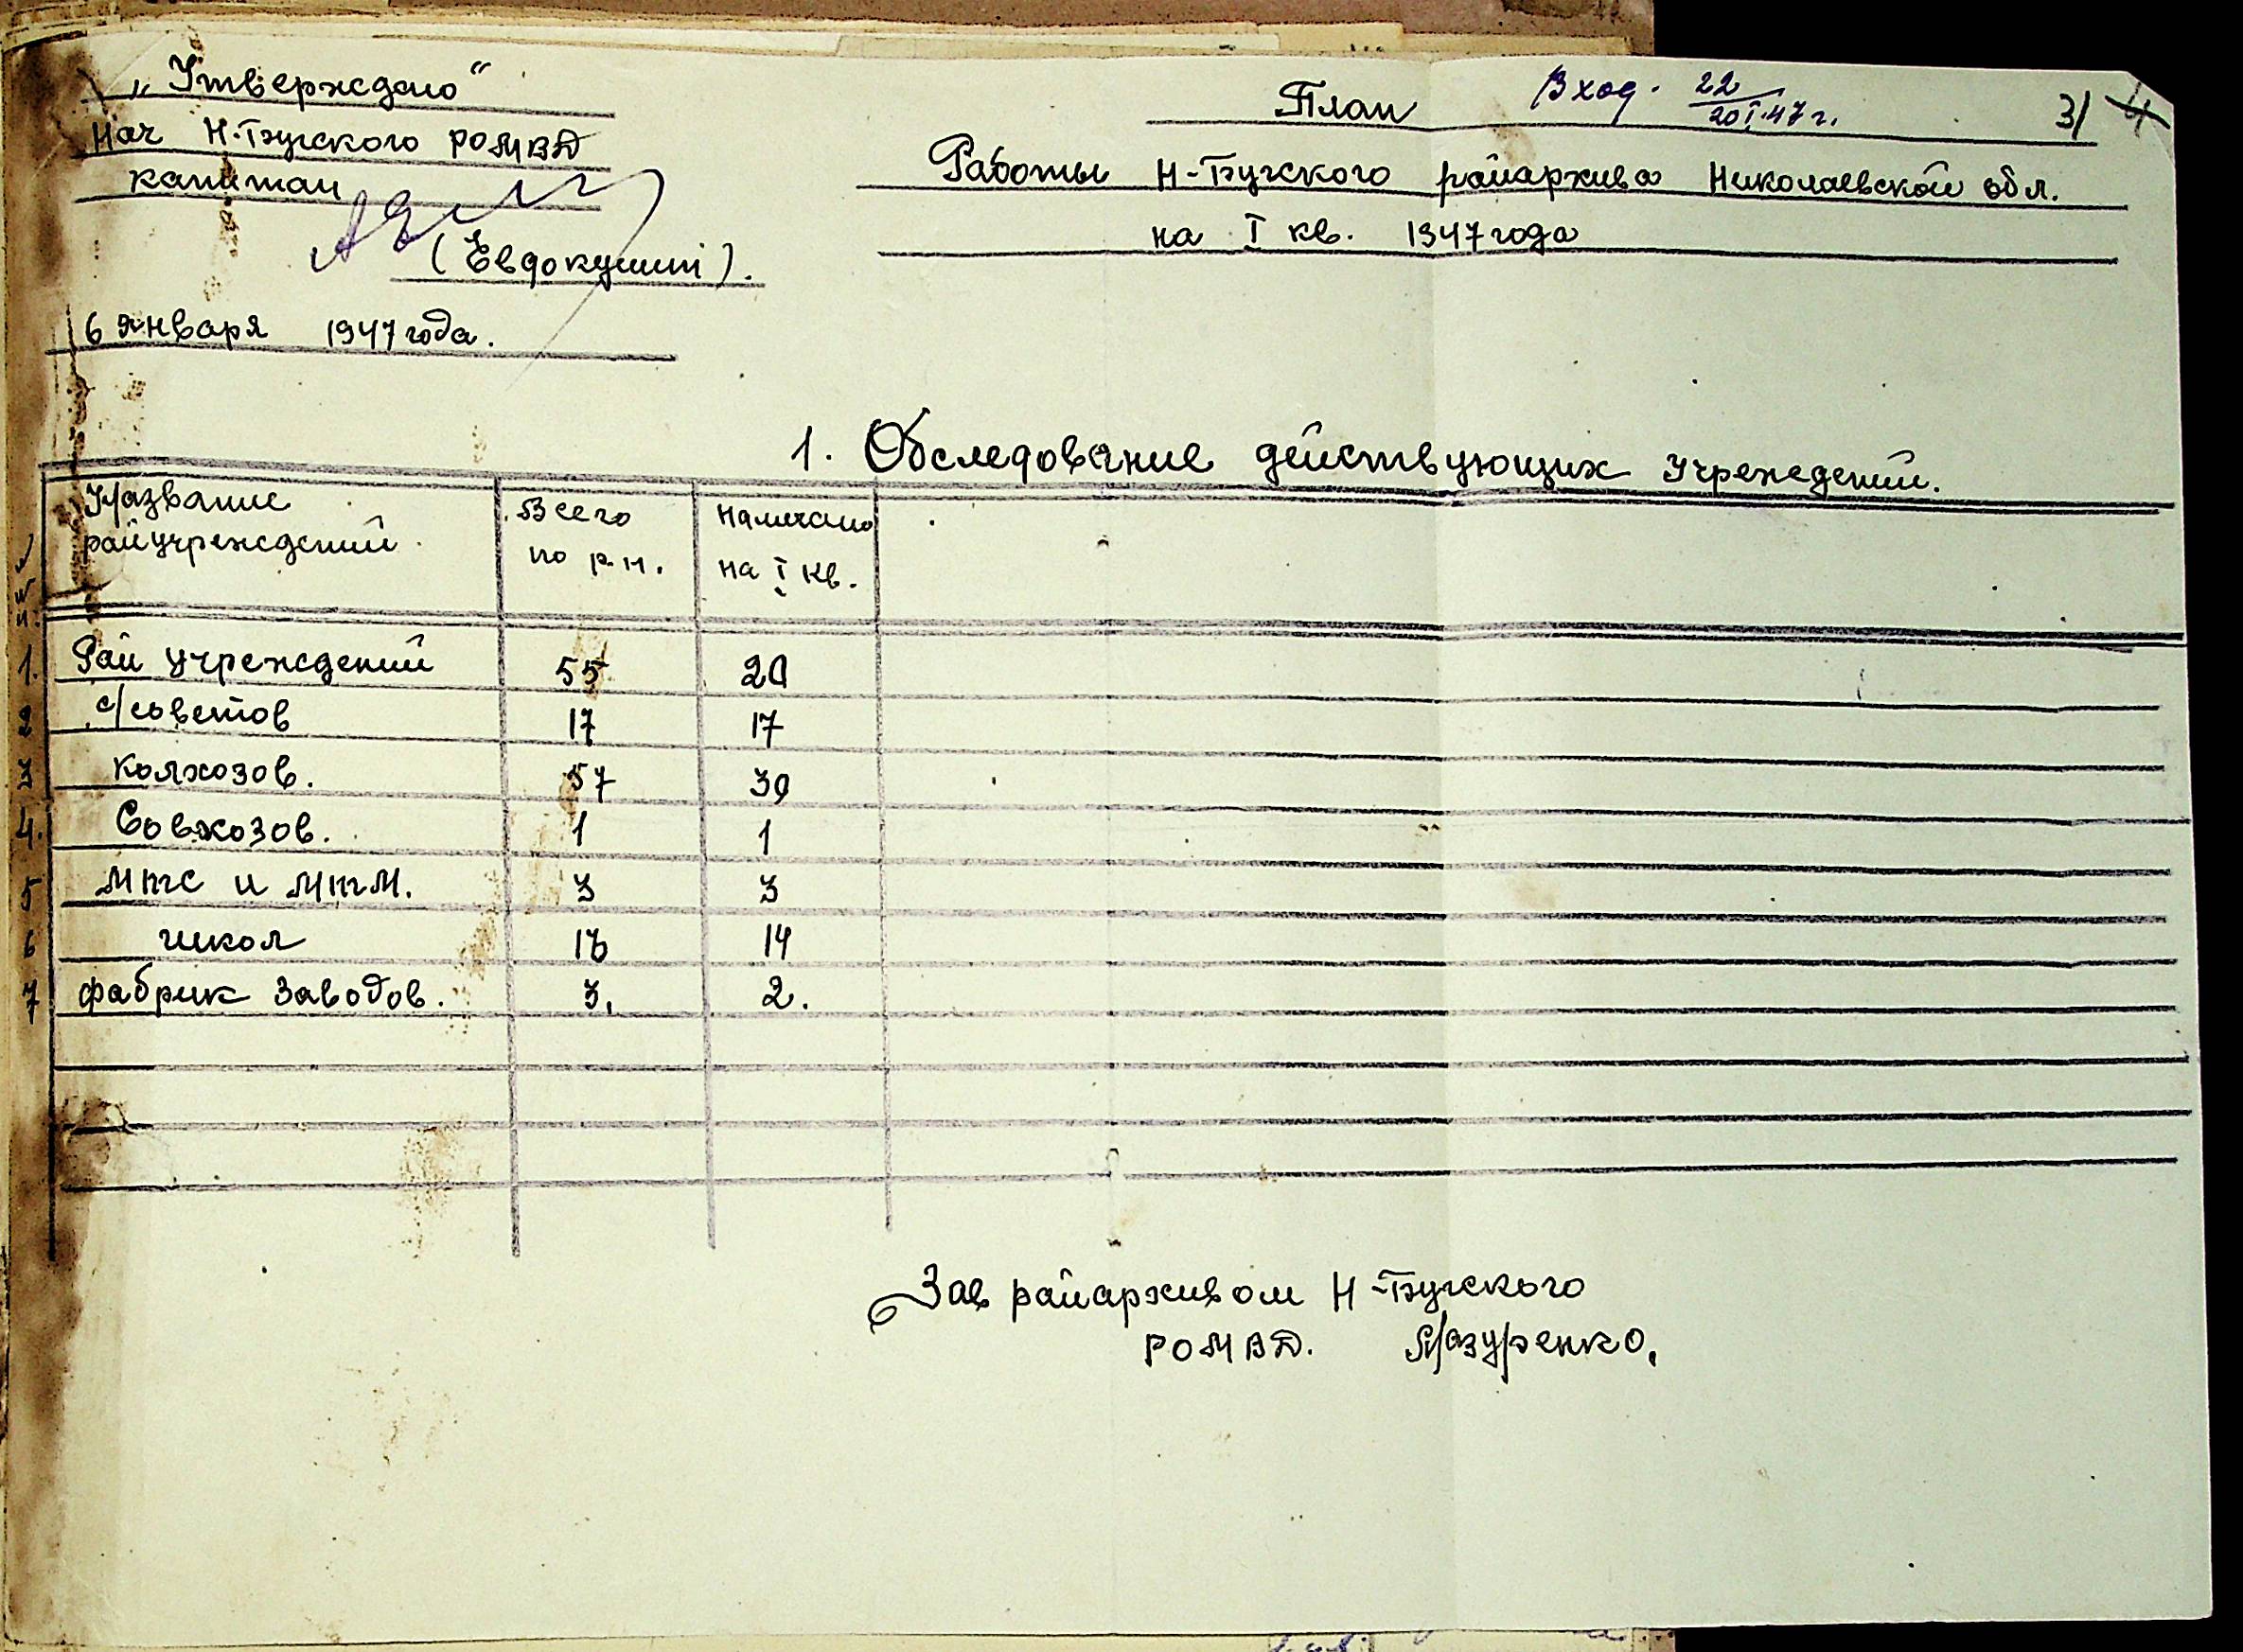 „Утверждаю“
Нач Н-Бугского РОМВД
капитан
(Евдокушин).
6 января 1947 года.
Вход. 22
20 I. 47 г.
31 4
План
Работы Н-Бугского райархива Николаевской обл.
на I кв. 1947 года
1. Обследование действующих учреждений.
Название Всего Намечено
райучреждений. по р.н. на I кв.
1. Рай учреждений 55 20
2 с/советов 17 17
3 колхозов. 57 30
4. Совхозов. 1 1
5 МТС и МТМ. 3 3
6 школ 14
7 фабрик заводов. 3. 2.
Зав райархивом Н-Бугского
РОМВД. Мазуренко.